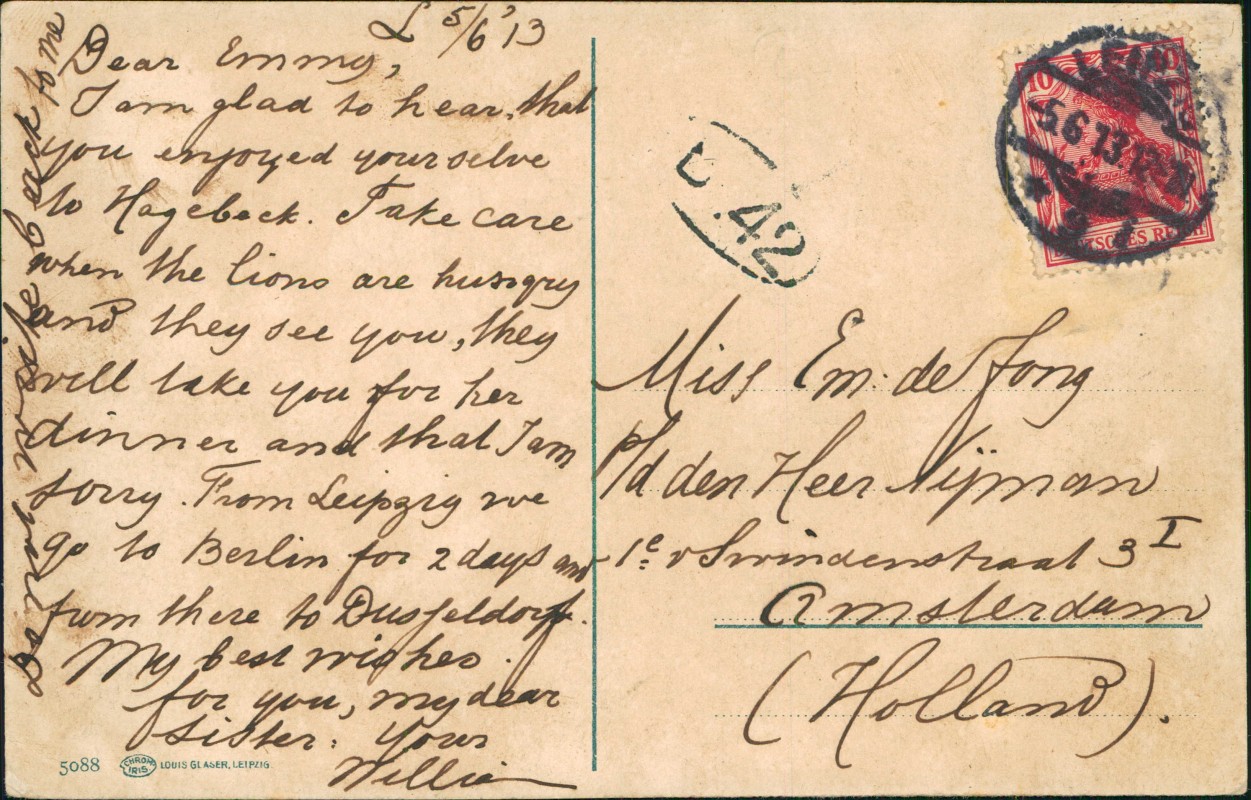 L 5/6 '13
Dear Emmy,
I am glad to hear, that
you enjoyed yourselve
to Hagebeck. Take care
when the lions are hungry
and they see you, they
will take you for her
dinner and that I am
sorry. From Leipzig we
go to Berlin for 2 days and
from there to Dusseldorf.
My best wishes
for you, my dear
sister. Your
Willie
me
to
back
go
5088 CHROM IRIS LOUIS GLASER, LEIPZIG.
10 10
DEUTSCHES REICH
LEIPZIG
5.6.13.12-1N
* 9 f
42
Miss Em. de Jong
p/d den Heer Nijman
1e v Swindenstraat 3 I
Amsterdam
(Holland).